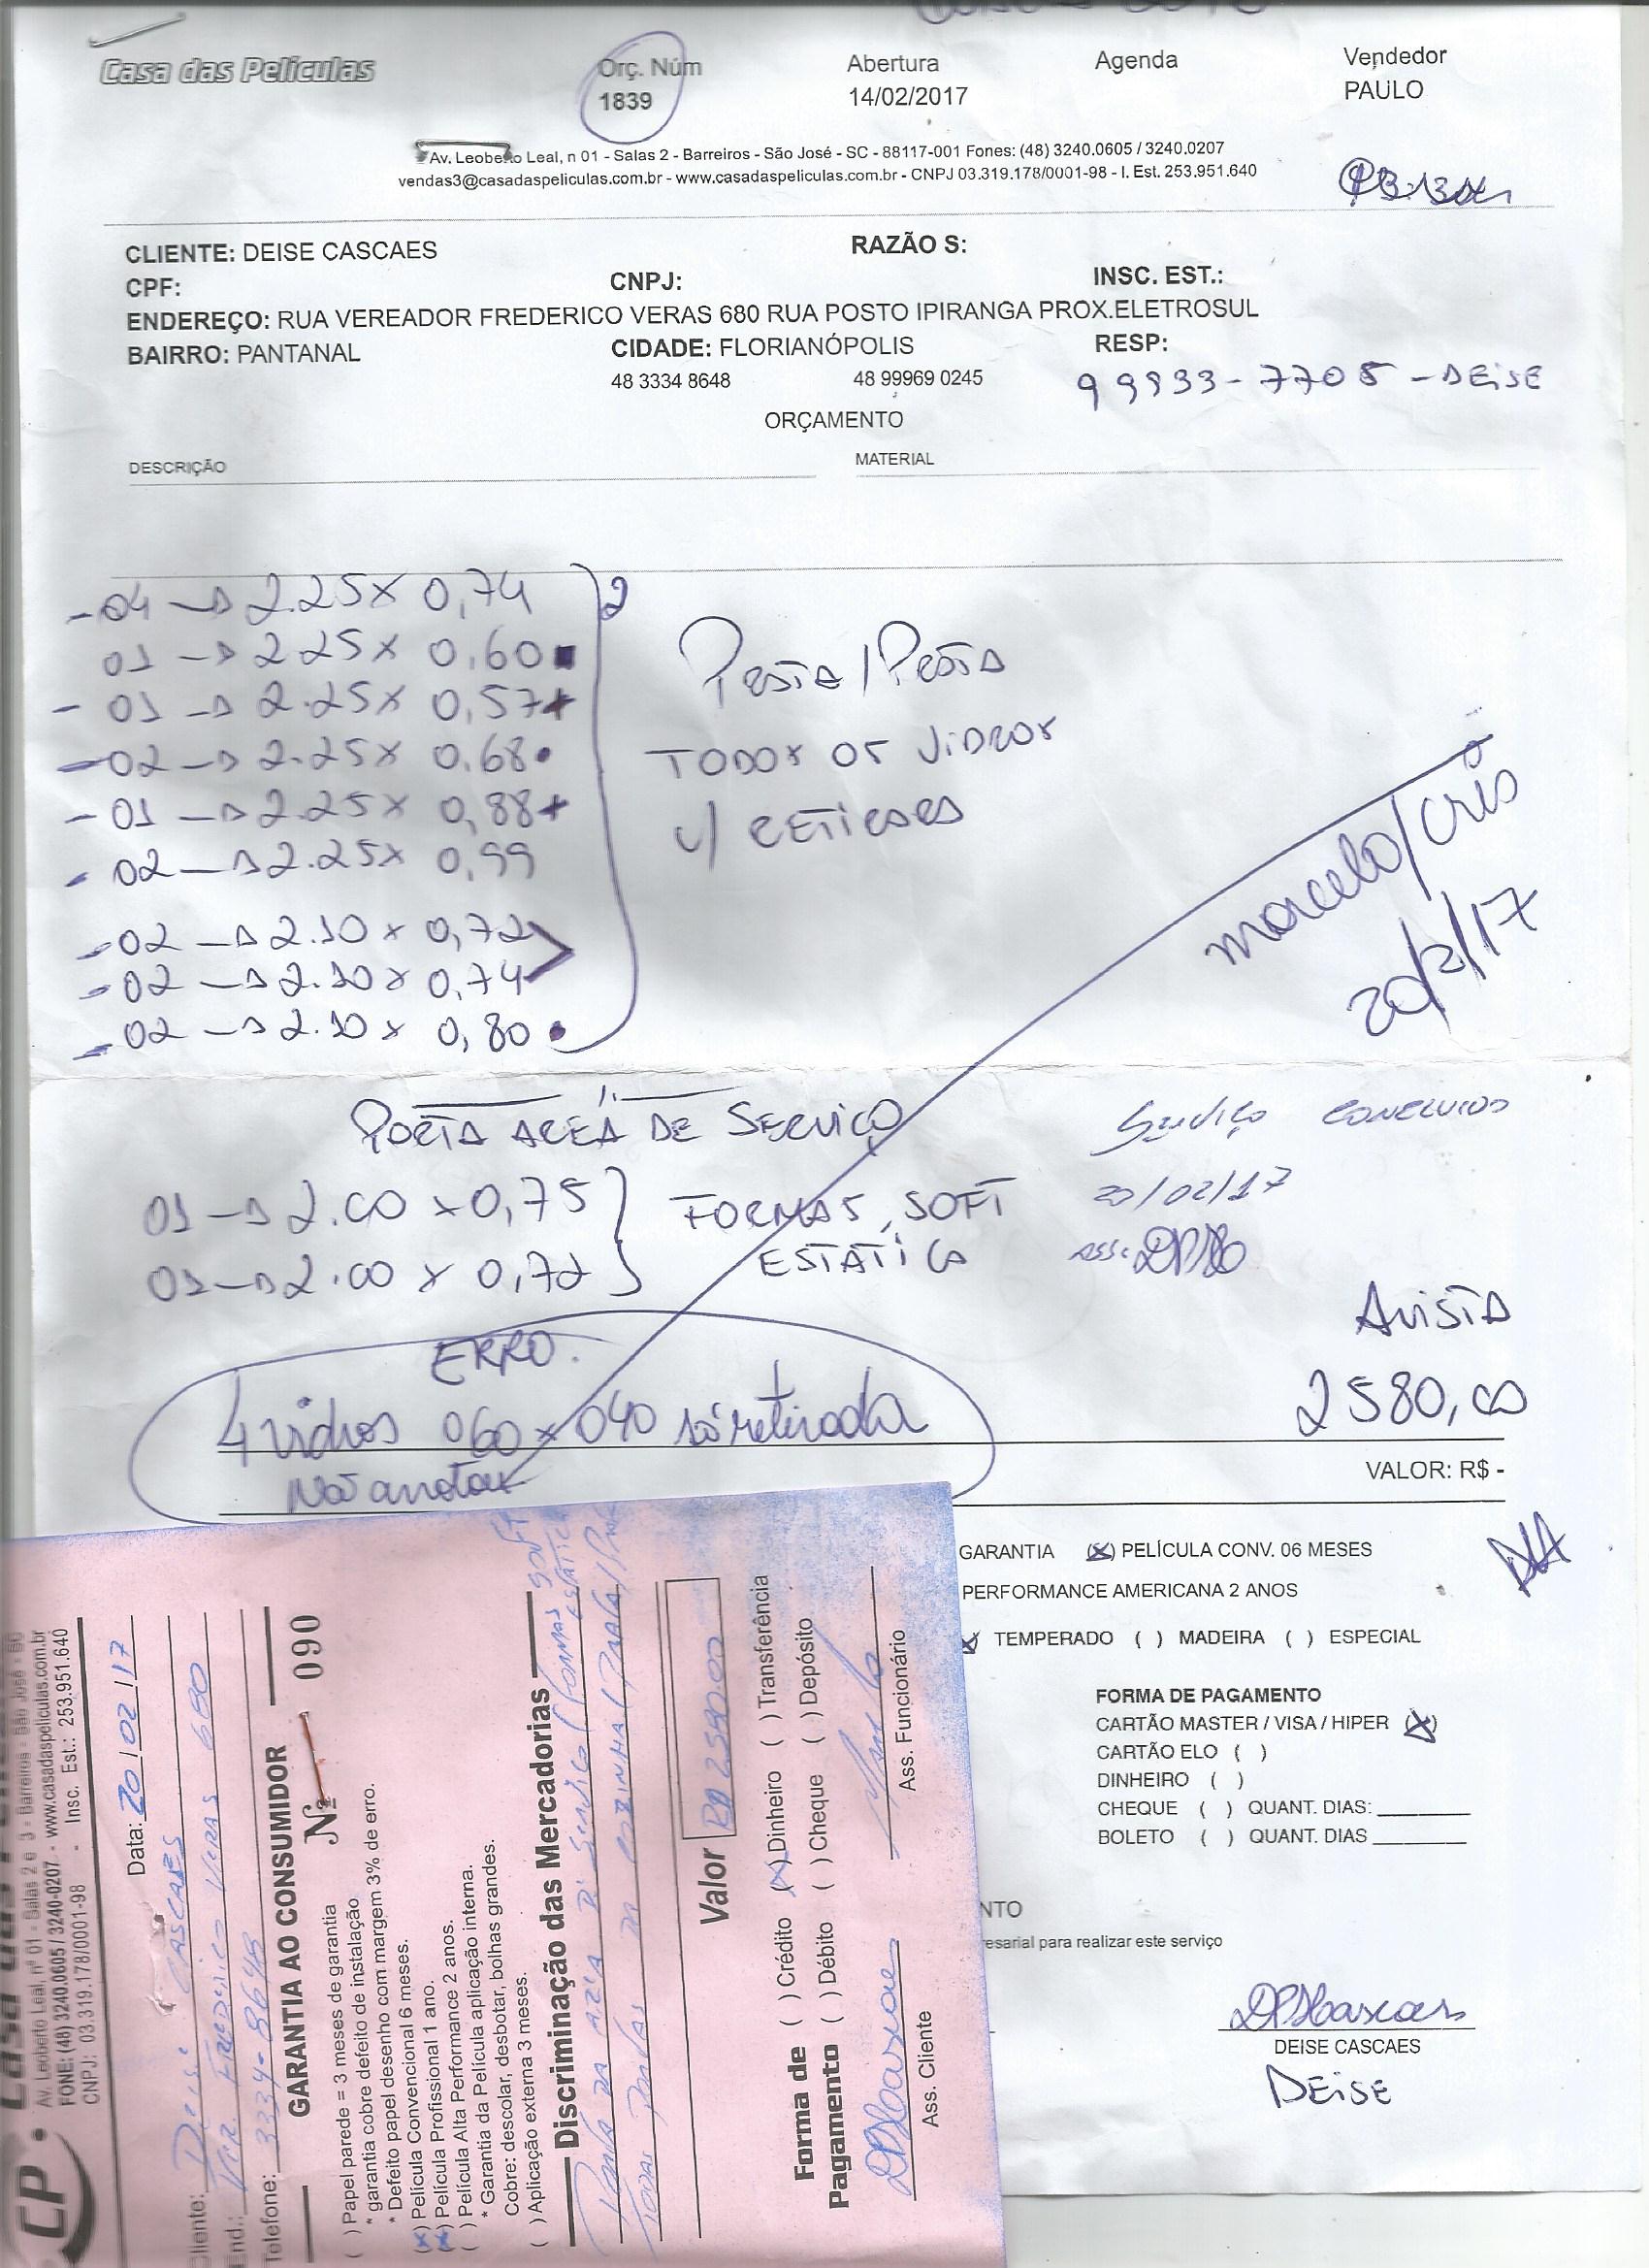 Casa das Películas
Orç. Núm
1839
Abertura
14/02/2017
Agenda
Vendedor
PAULO
Av. Leoberto Leal, n 01 - Salas 2 - Barreiros - São José - SC - 88117-001 Fones: (48) 3240.0605 / 3240.0207
vendas3@casadaspeliculas.com.br - www.casadaspeliculas.com.br - CNPJ 03.319.178/0001-98 - I. Est. 253.951.640
CLIENTE: DEISE CASCAES
RAZÃO S:
CPF:
CNPJ:
INSC. EST.:
ENDEREÇO: RUA VEREADOR FREDERICO VERAS 680 RUA POSTO IPIRANGA PROX.ELETROSUL
BAIRRO: PANTANAL
CIDADE: FLORIANÓPOLIS
RESP:
48 3334 8648
48 99969 0245
99933-7705 - DEISE
ORÇAMENTO
DESCRIÇÃO
MATERIAL
- 04 → 2.25 x 0,74
01 → 2.25 x 0,60
- 01 → 2.25 x 0,57
- 02 → 2.25 x 0,68
- 01 → 2.25 x 0,88
- 02 → 2.25 x 0,99
- 02 → 2.10 x 0,72
- 02 → 2.10 x 0,74
- 02 → 2.10 x 0,80
PRATA/PRATA
TODOS OS VIDROS
C/ RETIRADA
marcelo/Cris
20/2/17
PORTA AREA DE SERVIÇO
01 → 2.00 x 0,75
01 → 2.00 x 0,72
FORMAS, SOFT
ESTATICA
SERVIÇO CONCLUIDO
20/02/17
ASS:
AVISTA
2580,00
ERRO.
4 vidros 060 x 040 só retirada
Não anotou
VALOR: R$ -
GARANTIA (X) PELÍCULA CONV. 06 MESES
PERFORMANCE AMERICANA 2 ANOS
TEMPERADO ( ) MADEIRA ( ) ESPECIAL
FORMA DE PAGAMENTO
CARTÃO MASTER / VISA / HIPER (X)
CARTÃO ELO ( )
DINHEIRO ( )
CHEQUE ( ) QUANT. DIAS:
BOLETO ( ) QUANT. DIAS
NTO
resarial para realizar este serviço
DEISE CASCAES
DEISE
CP
Av. Leoberto Leal, nº 01 - Salas 2 e 3 - Barreiros - São José - SC
FONE: (48) 3240.0605 / 3240-0207 - www.casadaspeliculas.com.br
CNPJ: 03.319.178/0001-98 - Insc. Est.: 253.951.640
Data: 20/02/17
Cliente: Deise CASCAES
End.: Ver. FREDERICO VERAS 680
Telefone: 3334-8648
GARANTIA AO CONSUMIDOR
Nº 090
( ) Papel parede = 3 meses de garantia
* garantia cobre defeito de instalação
* Defeito papel desenho com margem 3% de erro.
(X) Película Convencional 6 meses.
(X) Película Profissional 1 ano.
( ) Película Alta Performance 2 anos.
* Garantia da Película aplicação interna.
Cobre: descolar, desbotar, bolhas grandes.
( ) Aplicação externa 3 meses.
Discriminação das Mercadorias
Porta da area de serviço (formas soft estatica
Todas portas da cozinha (Prata/Prata
Valor R$ 2580,00
Forma de Pagamento
( ) Crédito (X) Dinheiro ( ) Transferência
( ) Débito ( ) Cheque ( ) Depósito
Ass. Cliente
Ass. Funcionário